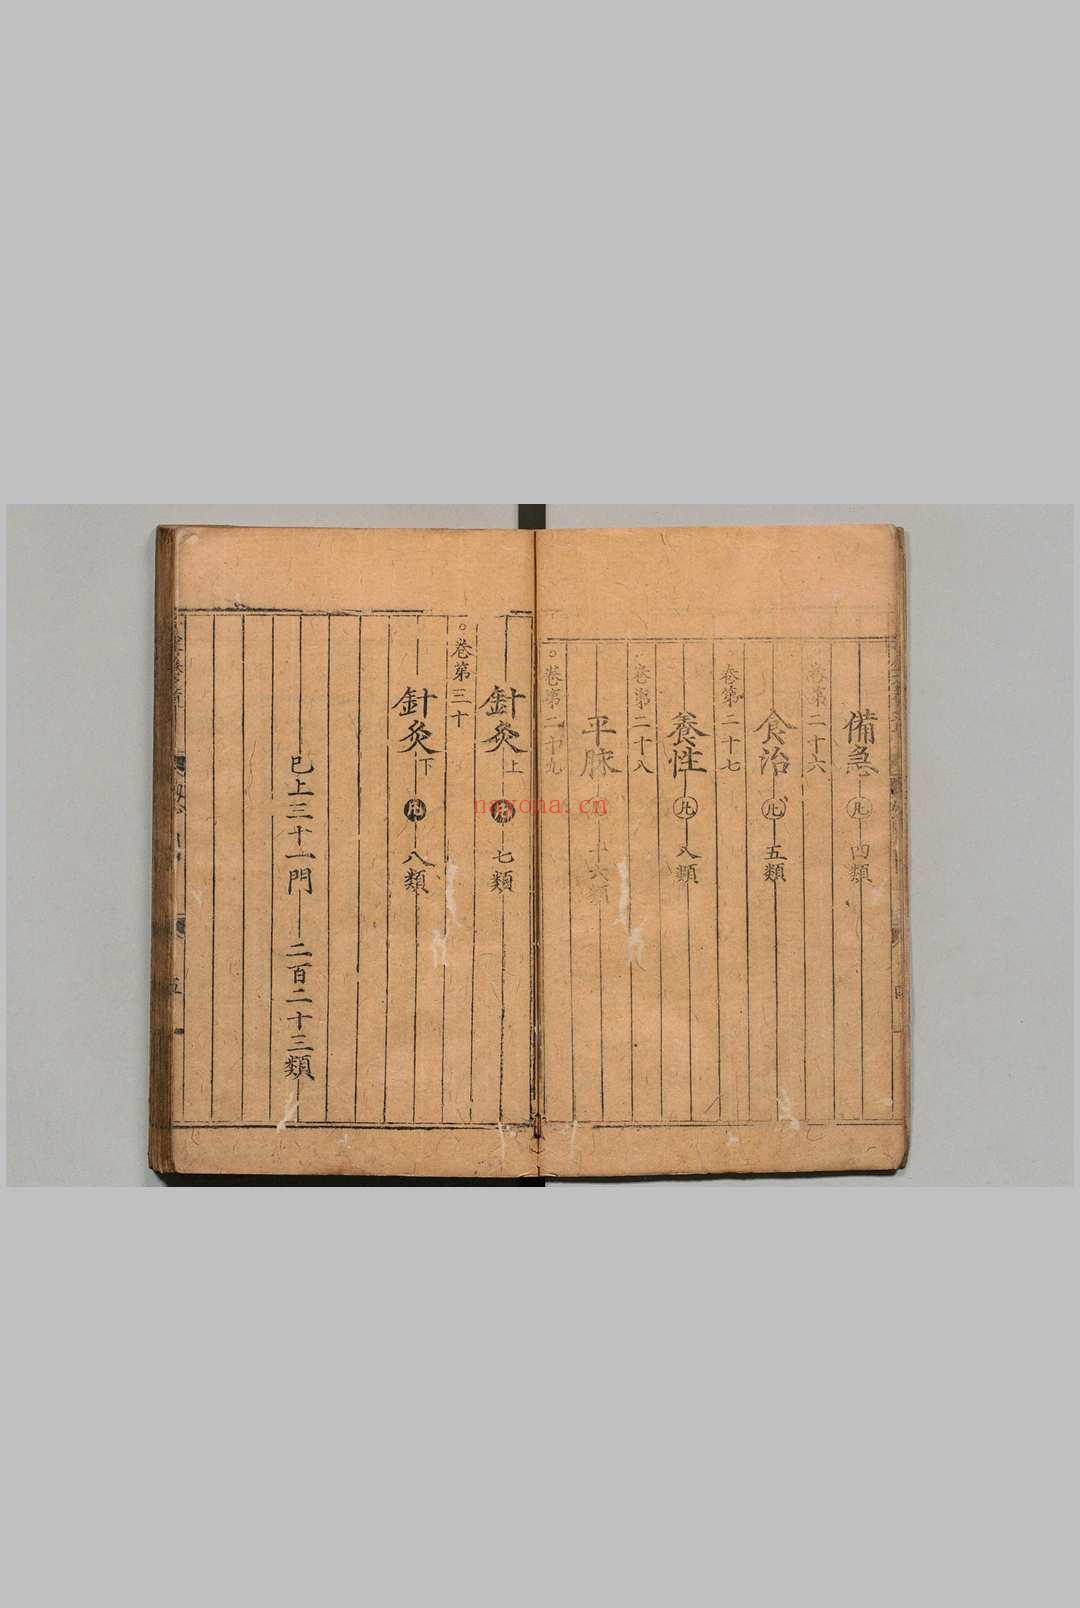 備急 凡 四類
卷第二十六
食治 凡 五類
卷第二十七
養性 凡 八類
卷第二十八
平脉 十六類
卷第二十九
針灸上 凡 七類
卷第三十
針灸下 凡 八類
巳上三十一門 二百二十三類
nayona.cn